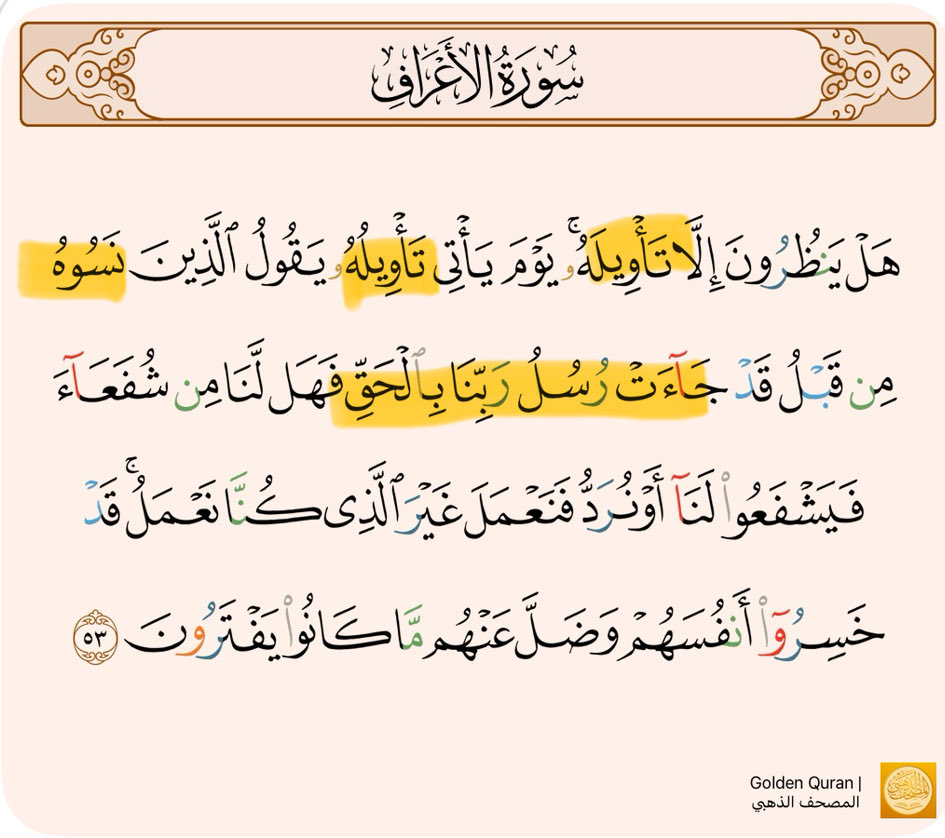 سُورَةُ الأَعْرَافِ
هَلْ يَنظُرُونَ إِلَّا تَأْوِيلَهُۥۚ يَوْمَ يَأْتِى تَأْوِيلُهُۥ يَقُولُ ٱلَّذِينَ نَسُوهُ
مِن قَبْلُ قَدْ جَآءَتْ رُسُلُ رَبِّنَا بِٱلْحَقِّ فَهَل لَّنَا مِن شُفَعَآءَ
فَيَشْفَعُوا۟ لَنَآ أَوْ نُرَدُّ فَنَعْمَلَ غَيْرَ ٱلَّذِى كُنَّا نَعْمَلُۚ قَدْ
خَسِرُوٓا۟ أَنفُسَهُمْ وَضَلَّ عَنْهُم مَّا كَانُوا۟ يَفْتَرُونَ ٥٣
Golden Quran |
المصحف الذهبي